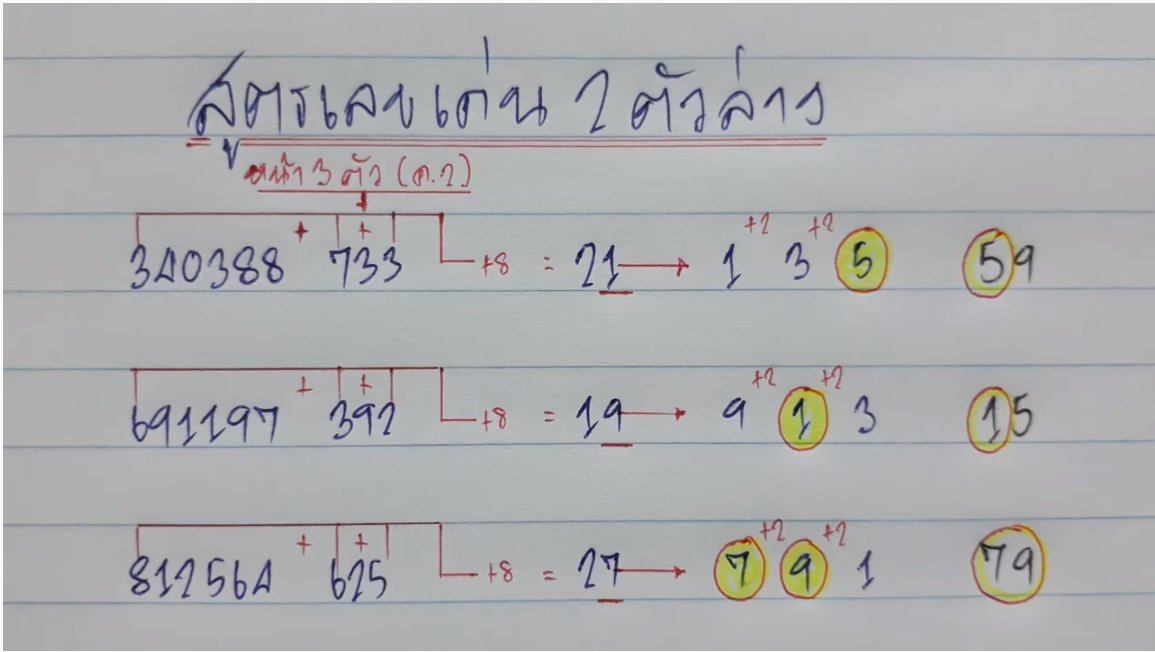 สูตรเลขเด่น 2 ตัวล่าง
หน้า 3 ตัว (ค.2)
340388 + 733 + +8 = 21 → 1 +2 3 +2 5 59
691197 + 392 + +8 = 19 → 9 +2 1 +2 3 15
812564 + 625 + +8 = 27 → 7 +2 9 +2 1 79